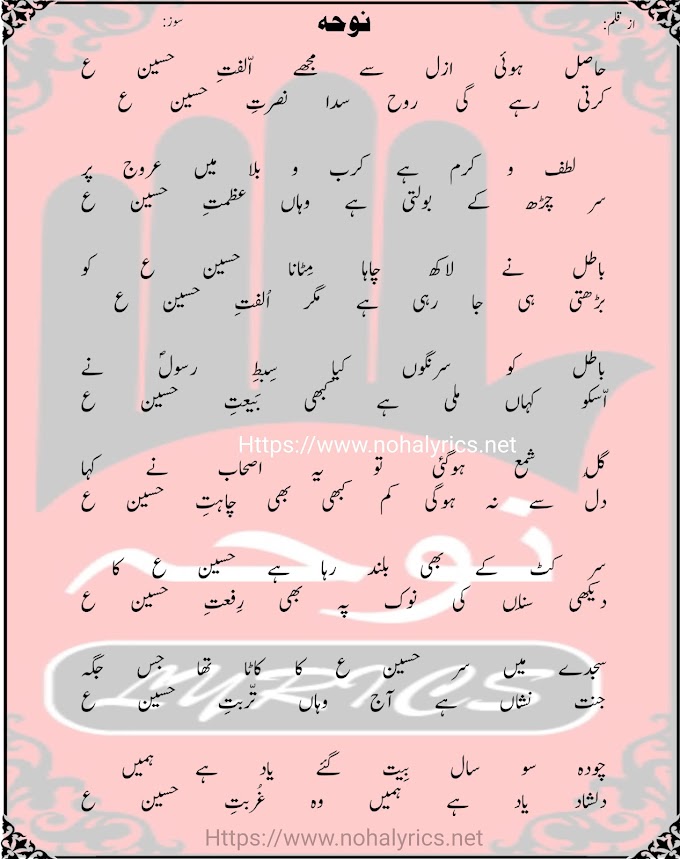 از قلم:
نوحہ
سوز:
حاصل ہوئی ازل سے مجھے اُلفتِ حسین ع
کرتی رہے گی روح سدا نصرتِ حسین ع
لطف و کرم ہے کرب و بلا میں عروج پر
سر چڑھ کے بولتی ہے وہاں عظمتِ حسین ع
باطل نے لاکھ چاہا مِٹانا حسین ع کو
بڑھتی ہی جا رہی ہے مگر اُلفتِ حسین ع
باطل کو سرنگوں کیا سِبطِ رسولؐ نے
اُسکو کہاں ملی ہے کبھی بَیعتِ حسین ع
Https://www.nohalyrics.net
گل شمع ہوگئی تو یہ اصحاب نے کہا
دل سے نہ ہوگی کم کبھی بھی چاہتِ حسین ع
نوحہ
سر کٹ کے بھی بلند رہا ہے حسین ع کا
دیکھی سناں کی نوک پہ بھی رِفعتِ حسین ع
سجدے میں سر حسین ع کا کاٹا تھا جس جگہ
LYRICS
جنت نشاں ہے آج وہاں تُربتِ حسین ع
چودہ سو سال بِیت گئے یاد ہے ہمیں
دلشاد یاد ہے ہمیں وہ غُربتِ حسین ع
Https://www.nohalyrics.net